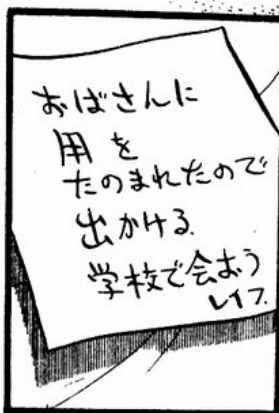 おばさんに
用を
たのまれたので
出かける.
学校で会おう
レイフ.